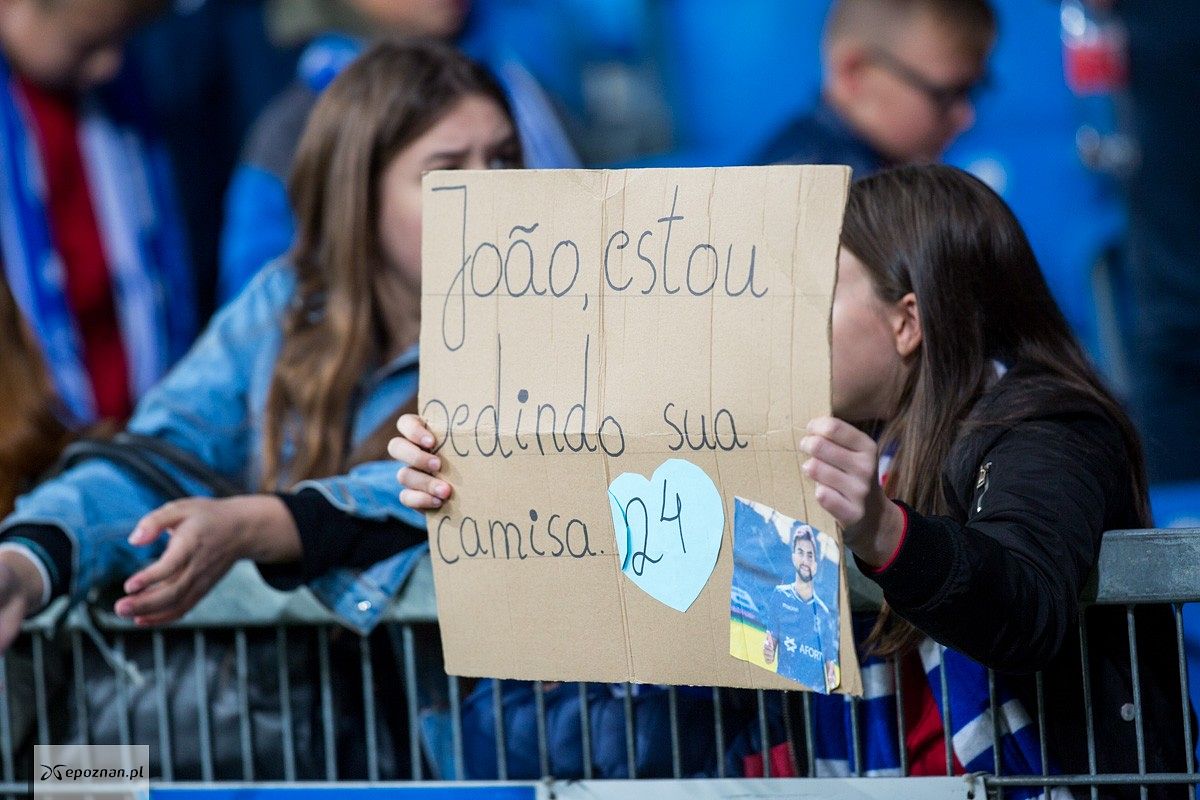 João, estou
pedindo sua
camisa. 24
AFORT
epoznan.pl